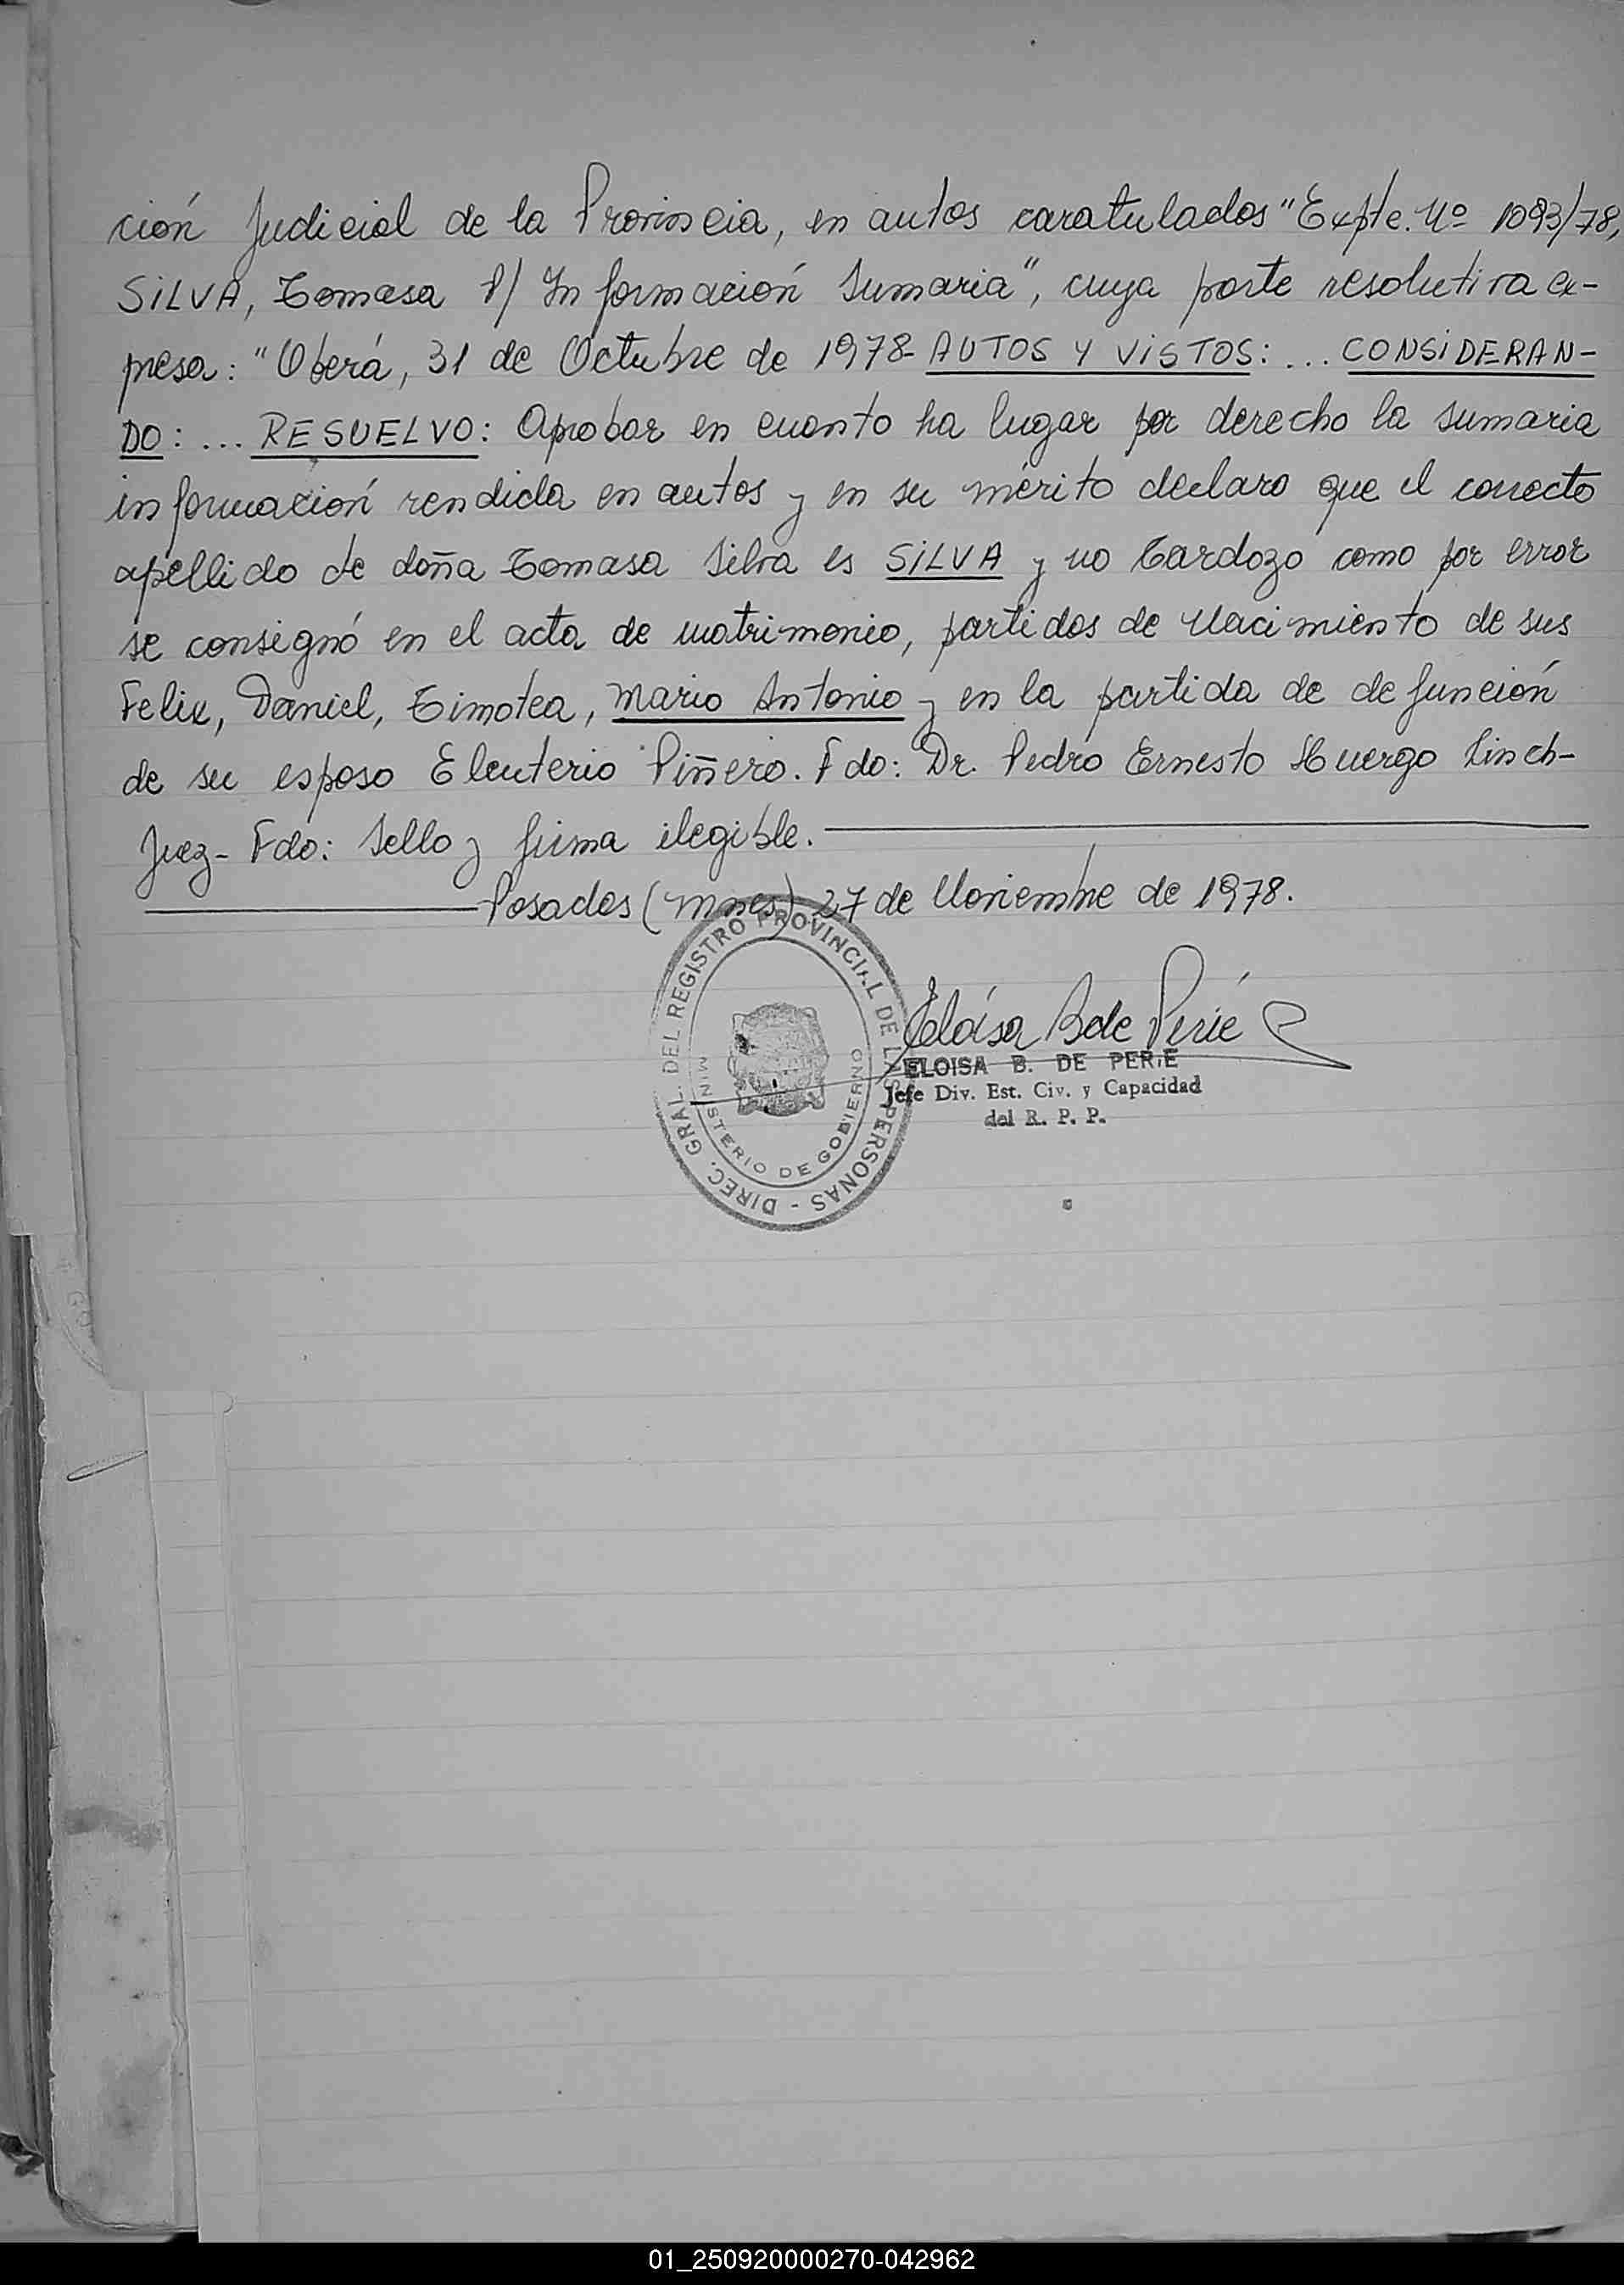 ción Judicial de la Provincia, en autos caratulados "Expte. Nº 1093/78,
SILVA, Tomasa S/ Información Sumaria", cuya parte resolutiva ex-
presa: "Oberá, 31 de Octubre de 1978- AUTOS Y VISTOS: ... CONSIDERAN-
DO: ... RESUELVO: Aprobar en cuanto ha lugar por derecho la sumaria
información rendida en autos y en su mérito declaro que el correcto
apellido de doña Tomasa Silva es SILVA y no Cardozo como por error
se consignó en el acta de matrimonio, partidas de Nacimiento de sus
Felix, Daniel, Timotea, Mario Antonio y en la partida de defunción
de su esposo Eleuterio Piñero. Fdo: Dr. Pedro Ernesto Huergo Linch-
Juez- Fdo: Sello y firma ilegible.
Posadas (Mnes) 27 de Noviembre de 1978.
DIREC. GRAL. DEL REGISTRO PROVINCIAL DE LAS PERSONAS -
MINISTERIO DE GOBIERNO
Eloísa B de Perié
ELOISA B. DE PERIE
Jefe Div. Est. Civ. y Capacidad
del R. P. P.
01_250920000270-042962